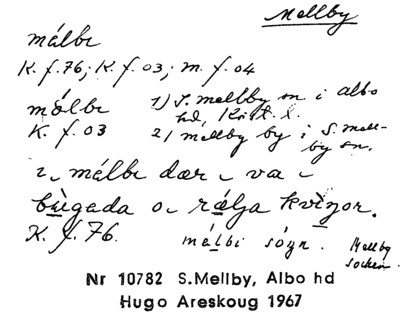 Mellby
målbı
K. f. 76; K. f. 03; m. f. 04
målbı 1) S. mellby sn i albo
hd, Krist. l.
K. f. 03 2) mellby by i S. mell-
by sn.
målbı dær va
bùgada o rælja kvìnor.
K. f. 76. målbi sógn. Mellby
socken.
Nr 10782 S.Mellby, Albo hd
Hugo Areskoug 1967